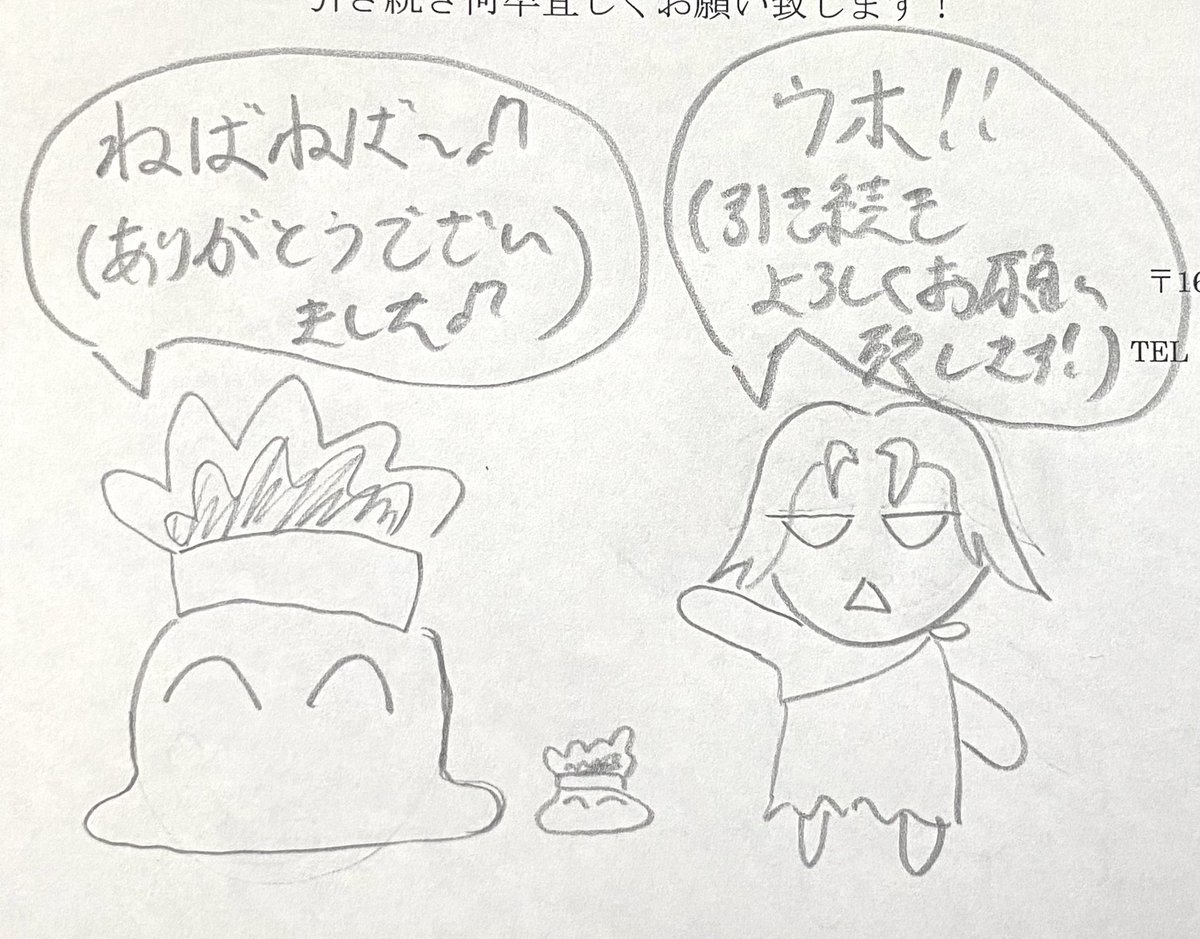 引き続き何卒宜しくお願い致します!
ねばねば〜♫
(ありがとうでざい
ました♫)
ウホ!!
(引き続き
よろしくお願い
致します!)
〒16
TEL